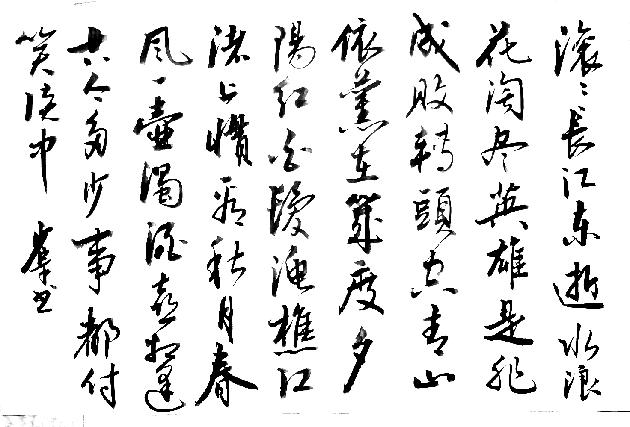 滚々長江东逝水浪
花淘尽英雄是非
成败轉頭空青山
依舊在幾度夕
陽红白髮渔樵江
渚上惯看秋月春
风一壶濁酒喜相逢
古今多少事都付
笑谈中 书